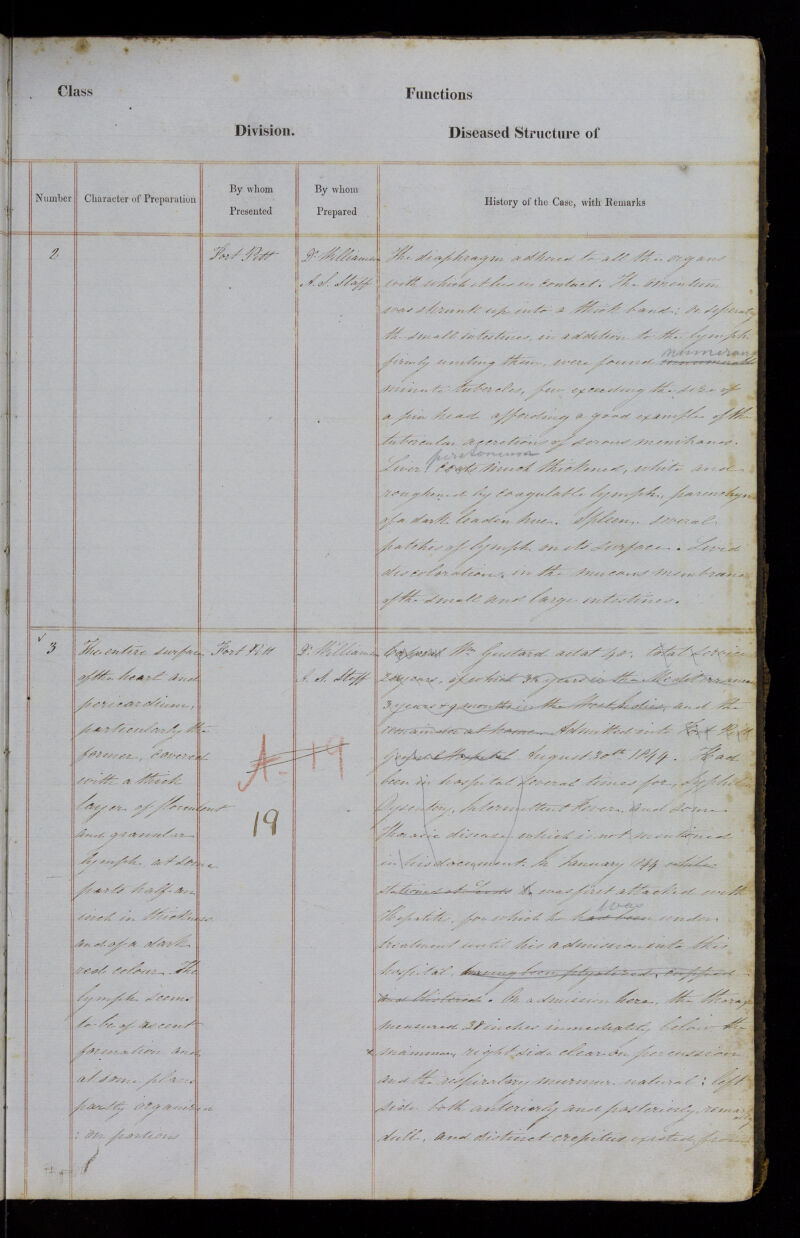 Class
Functions
Division.
Diseased Structure of
Number
Character of Preparation
By whom
Presented
By whom
Prepared
History of the Case, with Remarks
2
Fort Pitt
Dr Williamson
A. S. Staff
The diaphragm adhered to all the organs
with which it lies in contact. The omentum
was shrunk up into a thick band: on seperating
the small intestines, in addition to the lymph
firmly uniting them, were found innumerable numerous
minute tubercles, few exceeding the size of
a pin head affording a good example of the
tubercular accretions of serous membranes.
Liver: coats peritoneum much thickened, white and
roughened by coagulable lymph, parenchyma
of a dark leaden hue. Spleen several
patches of lymph on its surface. Livid
discoloration in the mucous membrane
of the small and large intestines.
3
The entire surface
of the heart and
pericardium,
particularly the
former, covered
with a thick
layer of flocculent
and granular
lymph, at some
parts half an
inch in thickness
and of a dark
red colour. The
lymph seems
to be of recent
formation and
at some places
partly organized
: on portions
Fort Pitt
Dr Williamson
A. S. Staff
A-19
19
Corporal Wm Gustard aetat 40. total service
years, of which 3 years in the Mediterranean
3 years & 9 months in the West Indies, and the
remainder at home. Admitted into Fort Pitt
General Hospital August 30th 1844. Had
been in hospital several times for, Syphilis
Dysentery, Intermittent Fever and some
Thoracic disease which is not mentioned
in his document. In January 1844 while
stationed at Leeds he was first attacked with
Hepatitis, for which he had been was under
treatment until his admission into this
hospital, having been cupped
and blistered. On admission here, the thorax
measured 38 inches immediately below the
x mammae, right side clear on percussion
and the respiratory murmur natural: left
side both anteriorly and posteriorly remarkably
dull, and distinct crepitus existed from